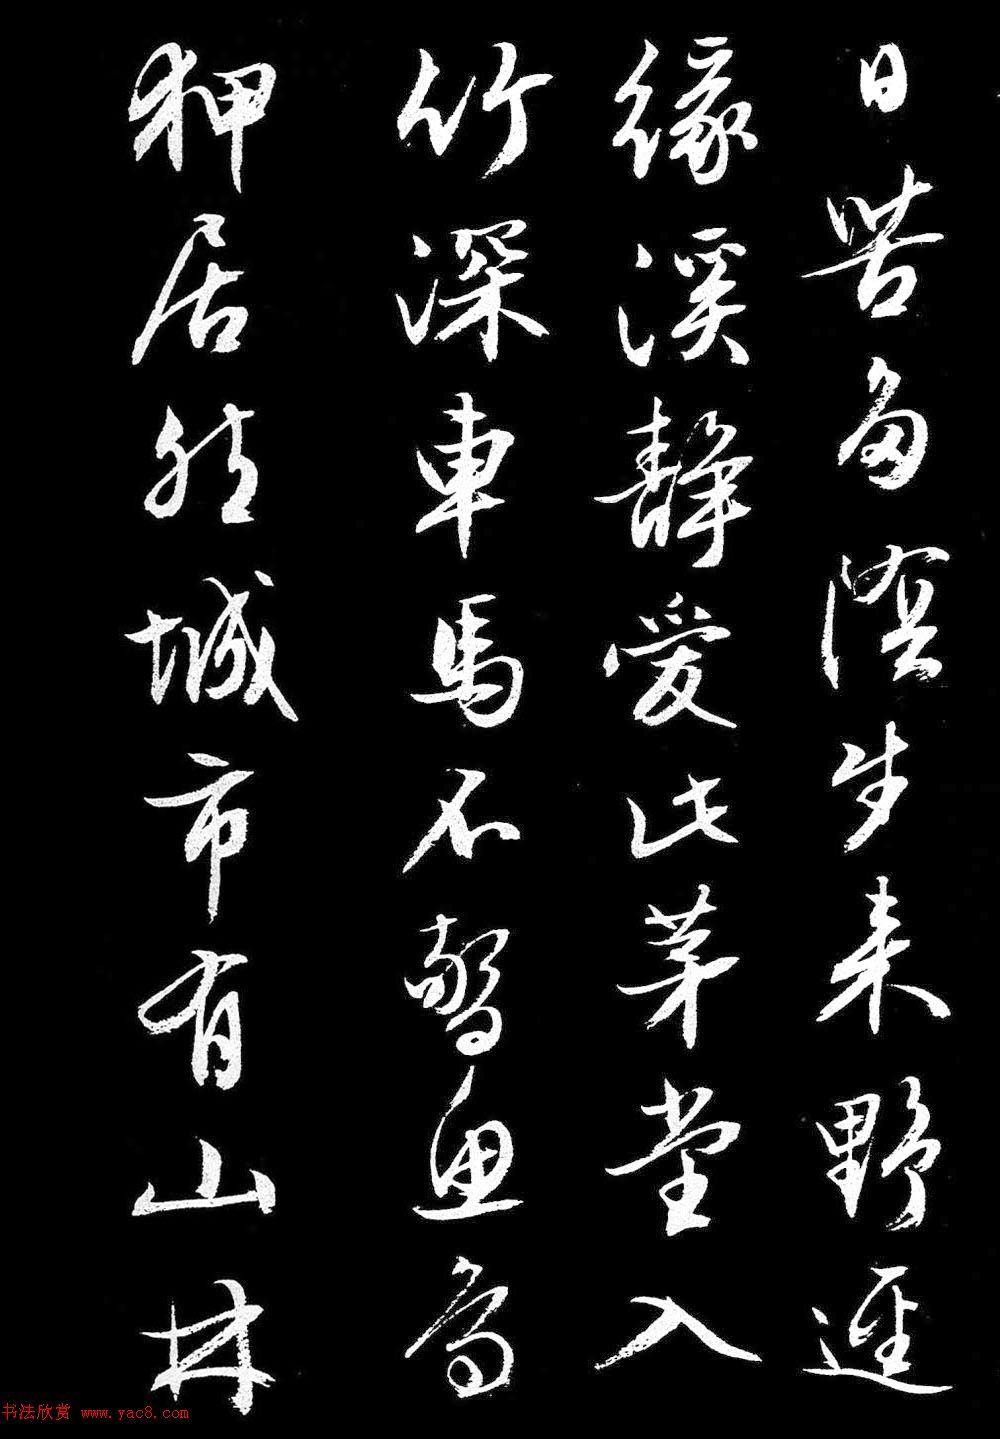 日苦多陰步来野逕
緣溪靜愛此茅堂入
竹深車馬不驚魚鳥
狎居然城市有山林
书法欣赏 www.yac8.com